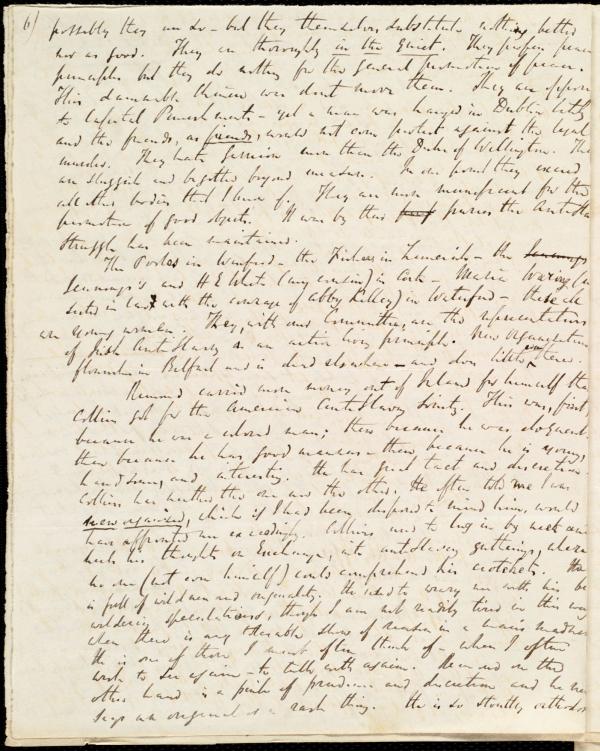 6)
possibly they can do - but they themselves substitute nothing better
nor as good. They are thoroughly in the quiet. They profess peace
principles but they do nothing for the general promotion of peace.
This damnable Chinese war dont move them. They are oppos
to Capital Punishments - yet a man was hanged in Dublin lately
and the friends, as friends, would not even protest against the legal
murder. They hate Garrison more than the Duke of Wellington. They
are sluggish and bigotted beyond measure. In one point they exceed
all other bodies that I know of. They are more munificent for the
promotion of good objects. It was by their purses the AntiSla
struggle has been maintained.
The Pooles in Wexford - the Fishers in Limerick - the
Jennings's and H E White (my cousin) in Cork - Maria Waring (a
sister in law with the courage of Abby Kelley) in Waterford - these all
are young women. They, with our Committee, are the representatives
of Irish AntiSlavery as an active living principle. New Organization
flourishes in Belfast and is dead elsewhere - and does little there.
Remond carried more money out of Ireland for himself tha
Collins got for the American AntiSlavery Society. This was, first,
because he was a colored man; then because he was eloquent.
then because he has good manners - then because he is young,
handsome, and interesting. He has great tact and discretion.
Collins has neither the one nor the other. He often told me I was
new organized, which if I had been disposed to mind him, would
have affronted me exceedingly. Collins used to lug in by neck and
heels his thoughts on Exchange, into antislavery gatherings, where
no one (not even himself) could comprehend his crotchets. He
is full of wildness and originality. He used to weary me with his be
wildering speculations, though I am not readily tired in this way
when there is any tolerable show of reason in a man's madness
He is one of those I must often think of - whom I often
wish to see again - to talk with again. Remond on the
other hand is a pink of prudence and discretion and he never
says an original or a rash thing. He is so stoutly orthodox